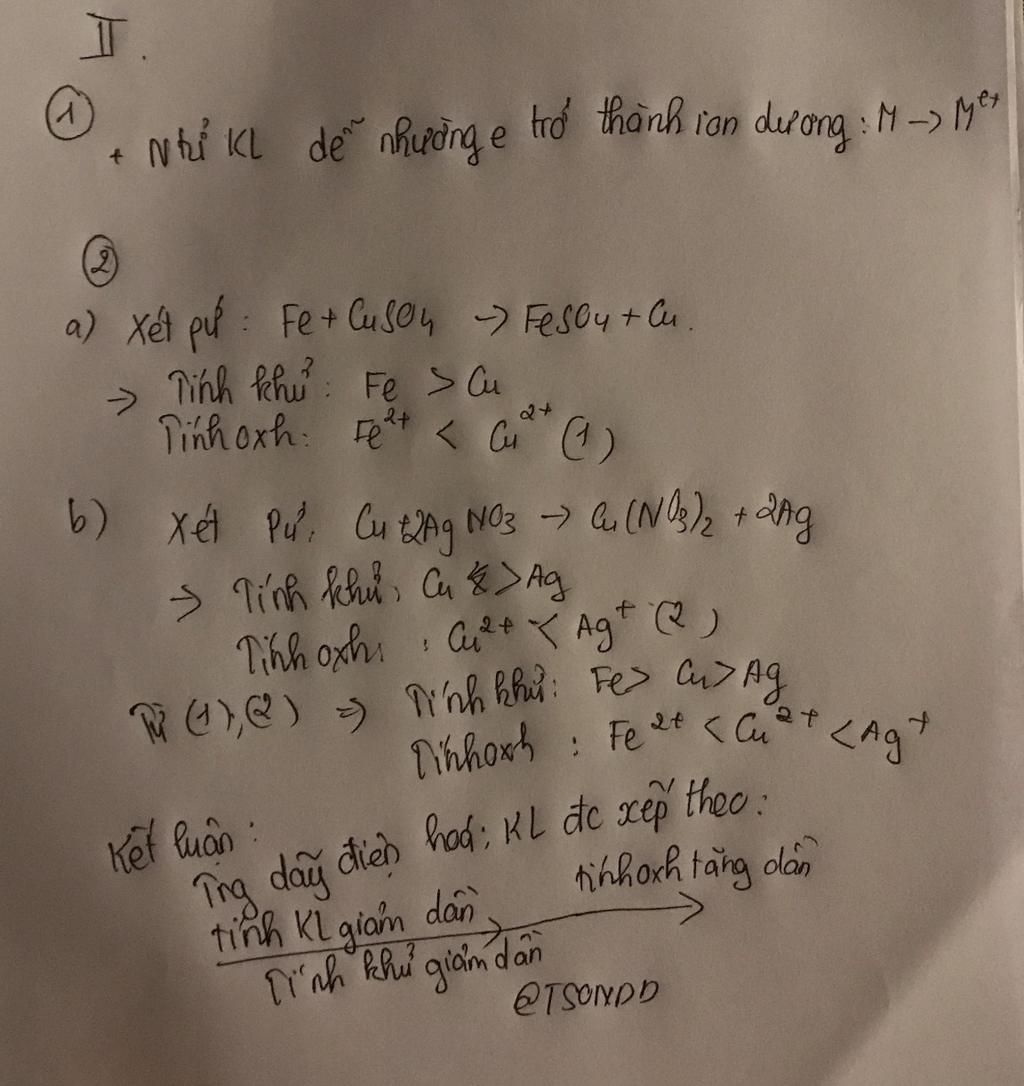 II.
①
+ Nhỉ KL dễ nhường e trở thành ion dương: M → Mᵉ⁺
②
a) Xét pứ: Fe + CuSO₄ → FeSO₄ + Cu.
⇒ Tính khử: Fe > Cu
Tính oxh: Fe²⁺ < Cu²⁺ (1)
b) Xét Pứ: Cu + 2AgNO₃ → Cu(NO₃)₂ + 2Ag
⇒ Tính khử: Cu > Ag
Tính oxh: Cu²⁺ < Ag⁺ (2)
Từ (1), (2) ⇒ Tính khử: Fe > Cu > Ag
Tính oxh: Fe²⁺ < Cu²⁺ < Ag⁺
Kết luận:
Trg dãy điện hoá: KL đc xếp theo:
tính KL giảm dần tính oxh tăng dần
Tính khử giảm dần
@TSONDD